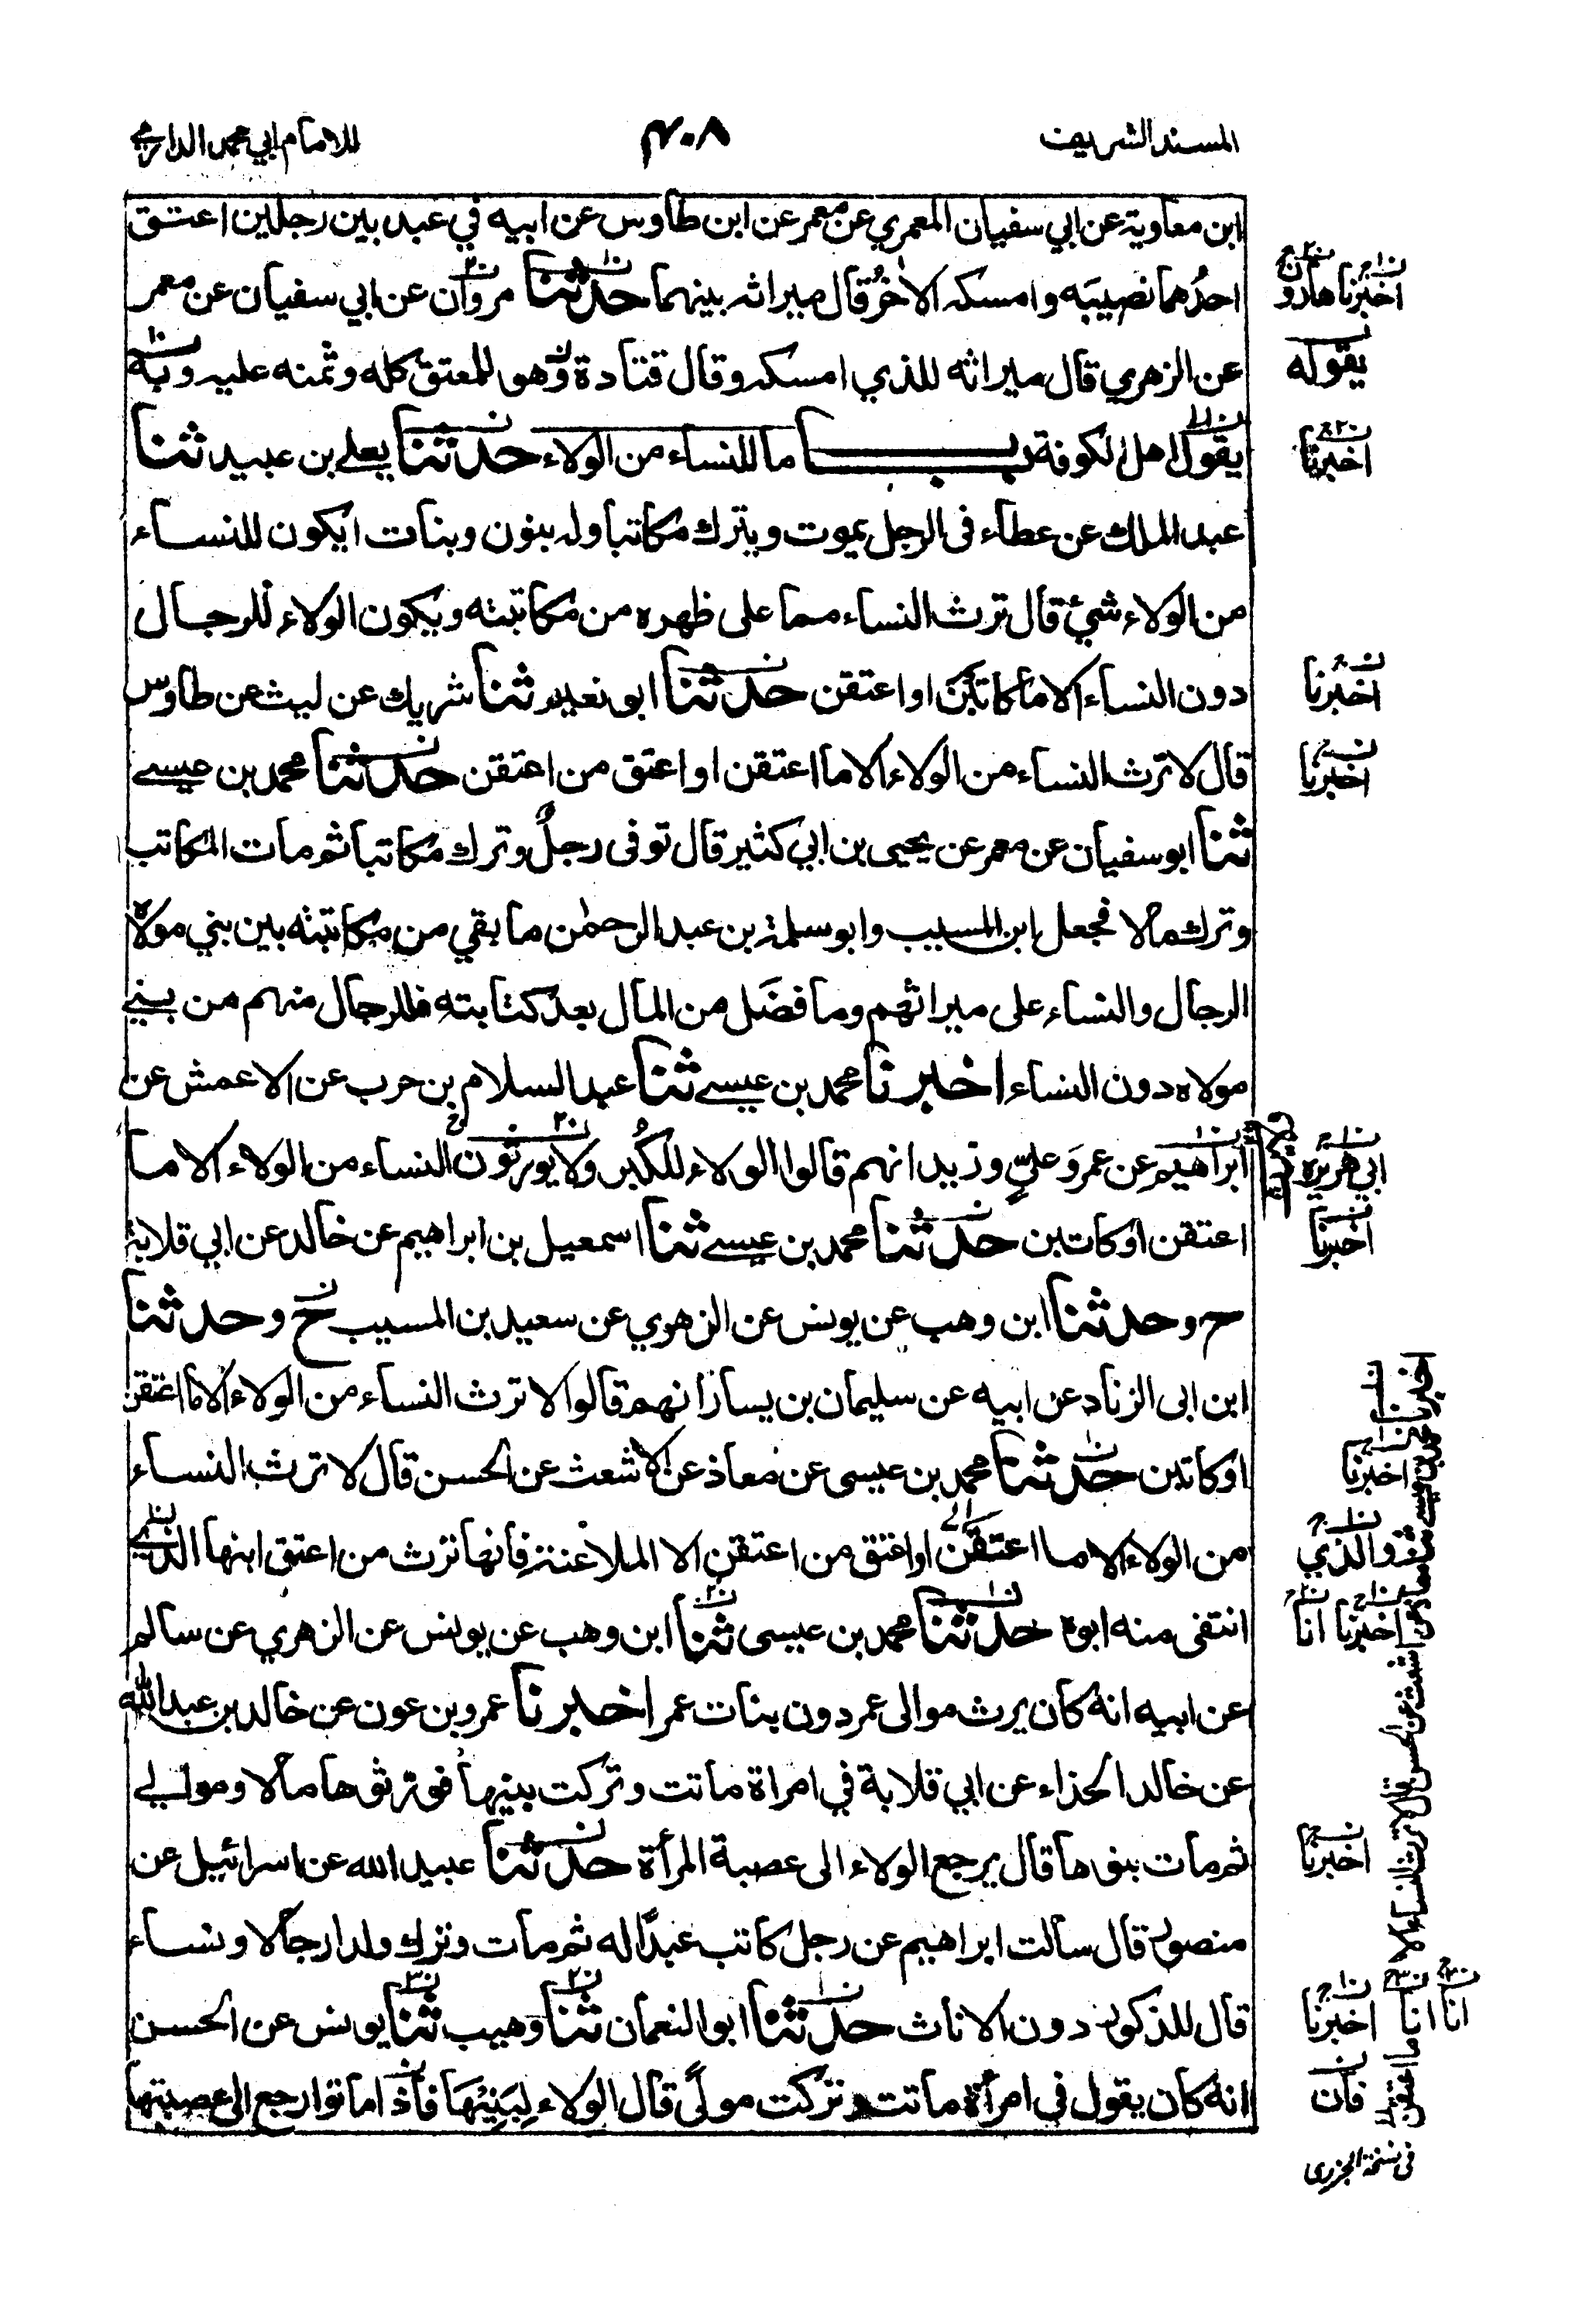 المسند الشريف
٤٠٨
للامام ابي محمد الدارمي
ابن معاوية عن ابي سفيان المعمري عن معمر عن ابن طاوس عن ابيه في عبد بين رجلين اعتق
احدُهما نصيبَه وامسكه الاخرُ قال ميراثه بينهما حدثنا مروان عن ابي سفيان عن معمر
عن الزهري قال ميراثه للذي امسكه وقال قتادة وهو للمعتق كله وثمنه عليه وبه
يقول اهل الكوفة باب ما للنساء من الولاء حدثنا يعلے بن عبيد ثنا
عبد الملك عن عطاء فى الرجل يموت ويترك مكاتبا وله بنون وبنات ايكون للنساء
من الولاء شئ قال ترث النساء مما على ظهره من مكاتبته ويكون الولاء للرجال
دون النساء الا ما كاتبن او اعتقن حدثنا ابو نعيم ثنا شريك عن ليث عن طاوس
قال لا ترث النساء من الولاء الا ما اعتقن او اعتق من اعتقن حدثنا محمد بن عيسے
ثنا ابو سفيان عن معمر عن يحيى بن ابي كثير قال توفى رجلٌ وترك مكاتبا ثم مات المكاتب
وترك مالا فجعل ابن المسيب وابو سلمة بن عبد الرحمٰن ما بقي من مكاتبته بين بني مولاه
الرجال والنساء على ميراثهم وما فضَل من المال بعد كتابته فللرجال منهم من بنے
مولاه دون النساء اخبرنا محمد بن عيسے ثنا عبد السلام بن حرب عن الاعمش عن
ابراهيم عن عمر وَعليٍّ وزيد انهم قالوا الولاء للكُبر ولا يورثون النساء من الولاء الا ما
اعتقن او كاتبن حدثنا محمد بن عيسے ثنا اسمعيل بن ابراهيم عن خالد عن ابي قلابة
ح وحدثنا ابن وهب عن يونس عن الزهري عن سعيد بن المسيب ح وحدثنا
ابن ابى الزناد عن ابيه عن سليمان بن يسار انهم قالوا لا ترث النساء من الولاء الا ما اعتقن
او كاتبن حدثنا محمد بن عيسى عن معاذ عن الاشعث عن الحسن قال لا ترث النساء
من الولاء الا ما اعتقن او اعتق من اعتقن الا الملاعنة فانها ترث من اعتق ابنها الذي
انتفى منه ابوه حدثنا محمد بن عيسى ثنا ابن وهب عن يونس عن الزهري عن سالم
عن ابيه انه كان يرث موالى عمر دون بنات عمر اخبرنا عمرو بن عون عن خالد بن عبد الله
عن خالد الحذاء عن ابي قلابة في امراة ماتت وتركت بنيها فورثوها مالا وموالے
ثم مات بنوها قال يرجع الولاء الى عصبة المرأة حدثنا عبيد الله عن اسرائيل عن
منصور قال سالت ابراهيم عن رجل كاتب عبدًا له ثم مات وترك ولدا رجالا ونساء
قال للذكور دون الاناث حدثنا ابو النعمان ثنا وهيب ثنا يونس عن الحسن
انه كان يقول في امرأة ماتت وتركت مولًى قال الولاء لِبَنِيْهَا فاذا ماتوا رجع الى عصبتها
اخبرنا هارون
يقوله
اخبرنا
اخبرنا
اخبرنا
ابي هريرة
اخبرنا
اخبرنا
والذي
اخبرنا انا
اخبرنا
اخبرنا انا انا
فان
اخبرنا محمد بن عيسے معاذ عن اشعث عن الحسن قال لا ترث النساء الا ما اعتقن
فى نسخة الجزرى